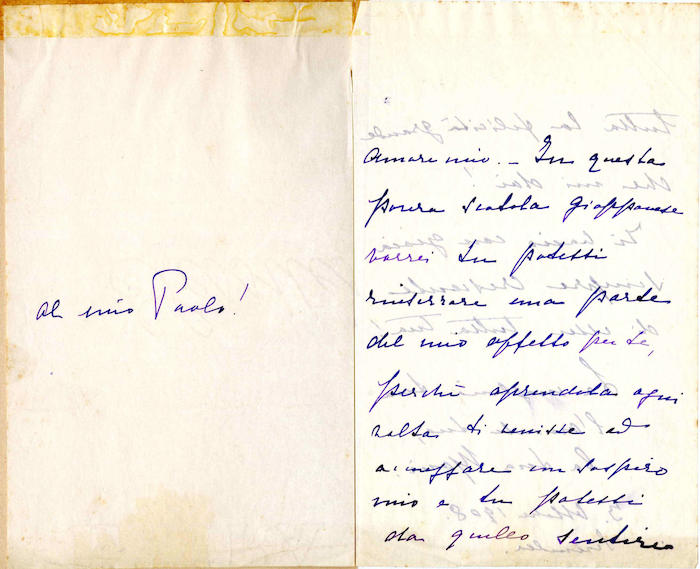 Al mio Paolo!
Amore mio. – In questa
povera scatola Giapponese
vorrei tu potessi
rinserrare una parte
del mio affetto per te,
perchè aprendola ogni
volta ti venisse ad
un sospiro
mio e tu potessi
da quello sentire